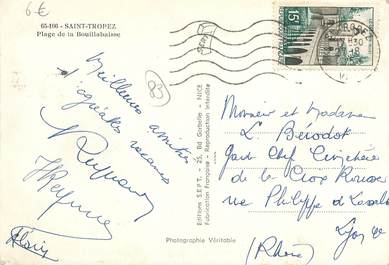 6€
65-106 - SAINT-TROPEZ
Plage de la Bouillabaisse
15F
8H30
18
83
Meilleures amitiés
agréables vacances
Editions S.E.P.T. - 25, Bd Gorbella - NICE
Fabrication Française - Reproduction Interdite
Photographie Véritable
Monsieur et Madame
L. Benodot
Gard Chef Cimetière
de la Croix Rousse
rue Philippe de Lassalle
Lyon
(Rhône)